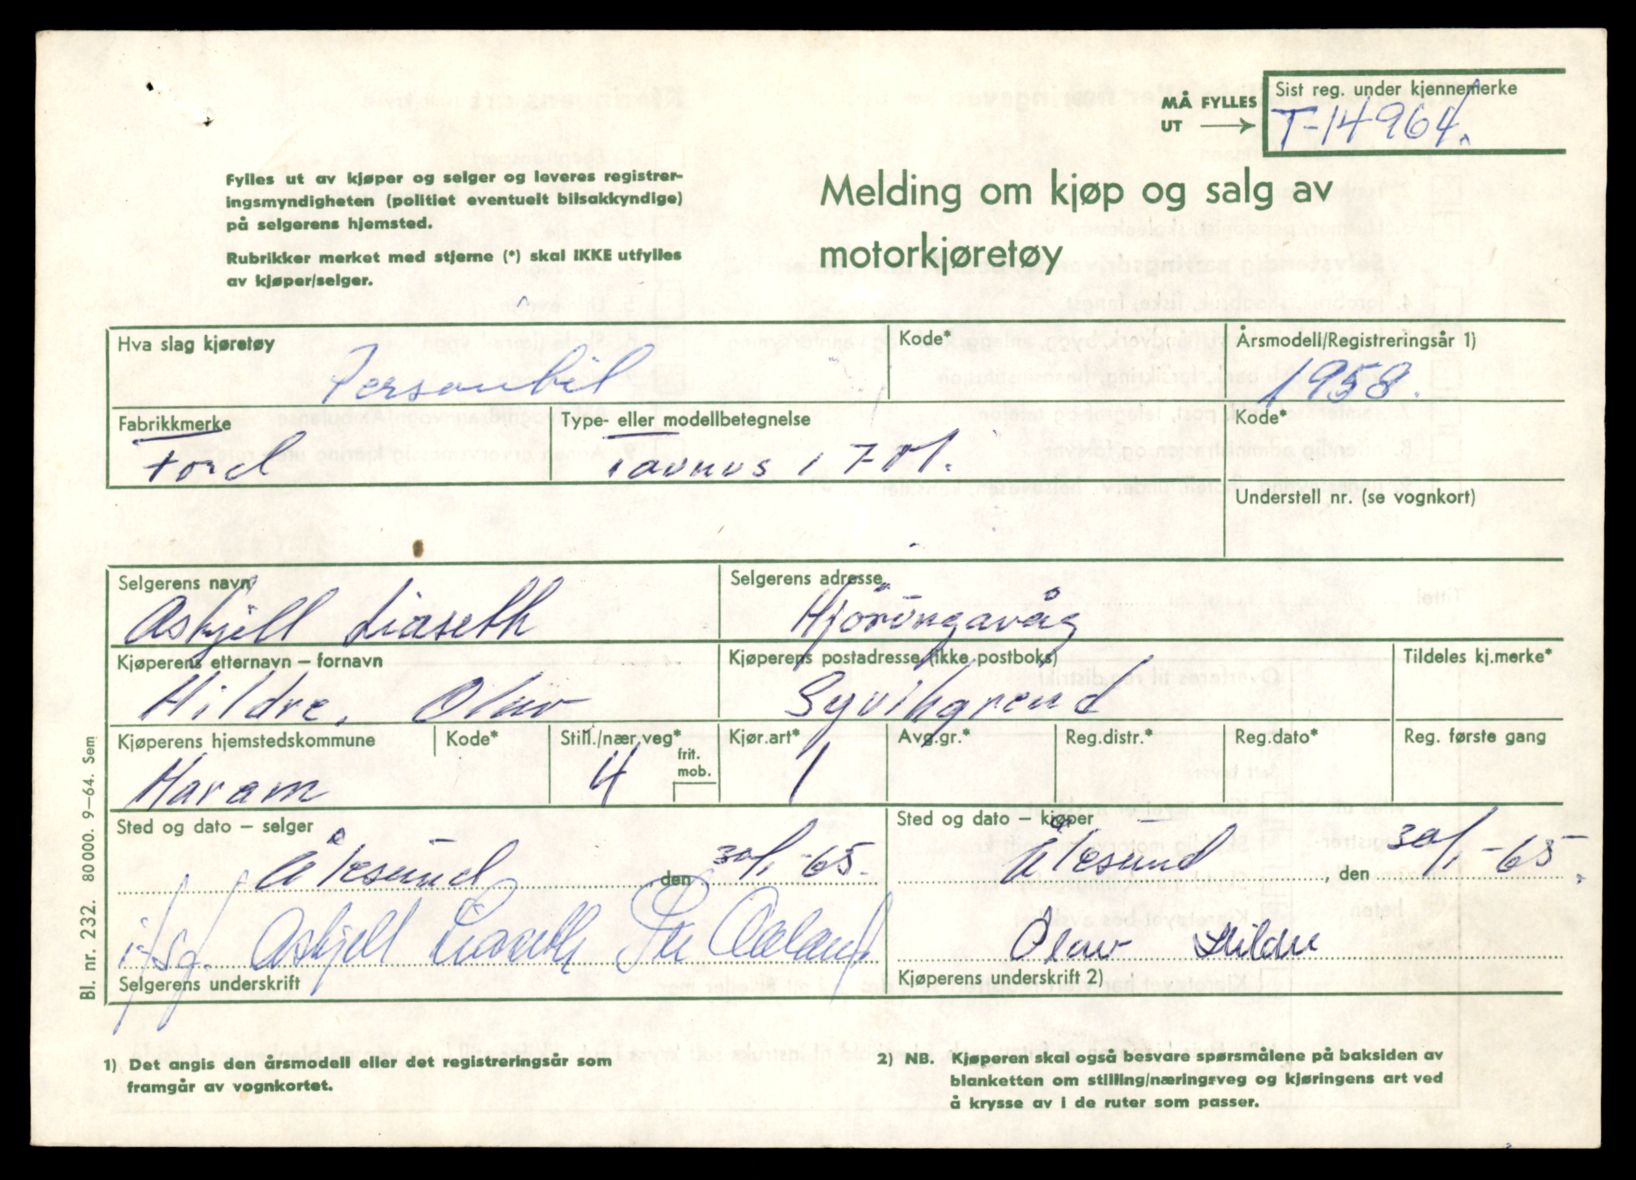 MÅ FYLLES
UT
Sist reg. under kjennemerke
T-14964.
Fylles ut av kjøper og selger og leveres registrer-
ingsmyndigheten (politiet eventuelt bilsakkyndige)
på selgerens hjemsted.
Rubrikker merket med stjerne (*) skal IKKE utfylles
av kjøper/selger.
Melding om kjøp og salg av
motorkjøretøy
Hva slag kjøretøy
Personbil
Kode*
Årsmodell/Registreringsår 1)
1958.
Fabrikkmerke
Ford
Type- eller modellbetegnelse
Taunus 17 M.
Kode*
Understell nr. (se vognkort)
Selgerens navn
Askjell Liaseth
Selgerens adresse
Hjørungavåg
Kjøperens etternavn – fornavn
Hildre, Olav
Kjøperens postadresse (ikke postboks)
Syvikgrend
Tildeles kj.merke*
Kjøperens hjemstedskommune
Haram
Kode*
Still./nær.veg*
4
frit.
mob.
Kjør.art*
1
Avg.gr.*
Reg.distr.*
Reg.dato*
Reg. første gang
Sted og dato – selger
Ålesund, den 30/1-65.
Sted og dato – kjøper
Ålesund, den 30/1-65.
Askjell Liaseth
Selgerens underskrift
Olav Hildre
Kjøperens underskrift 2)
Bl. nr. 232. 80000. 9–64. Sem
1) Det angis den årsmodell eller det registreringsår som
framgår av vognkortet.
2) NB. Kjøperen skal også besvare spørsmålene på baksiden av
blanketten om stilling/næringsveg og kjøringens art ved
å krysse av i de ruter som passer.